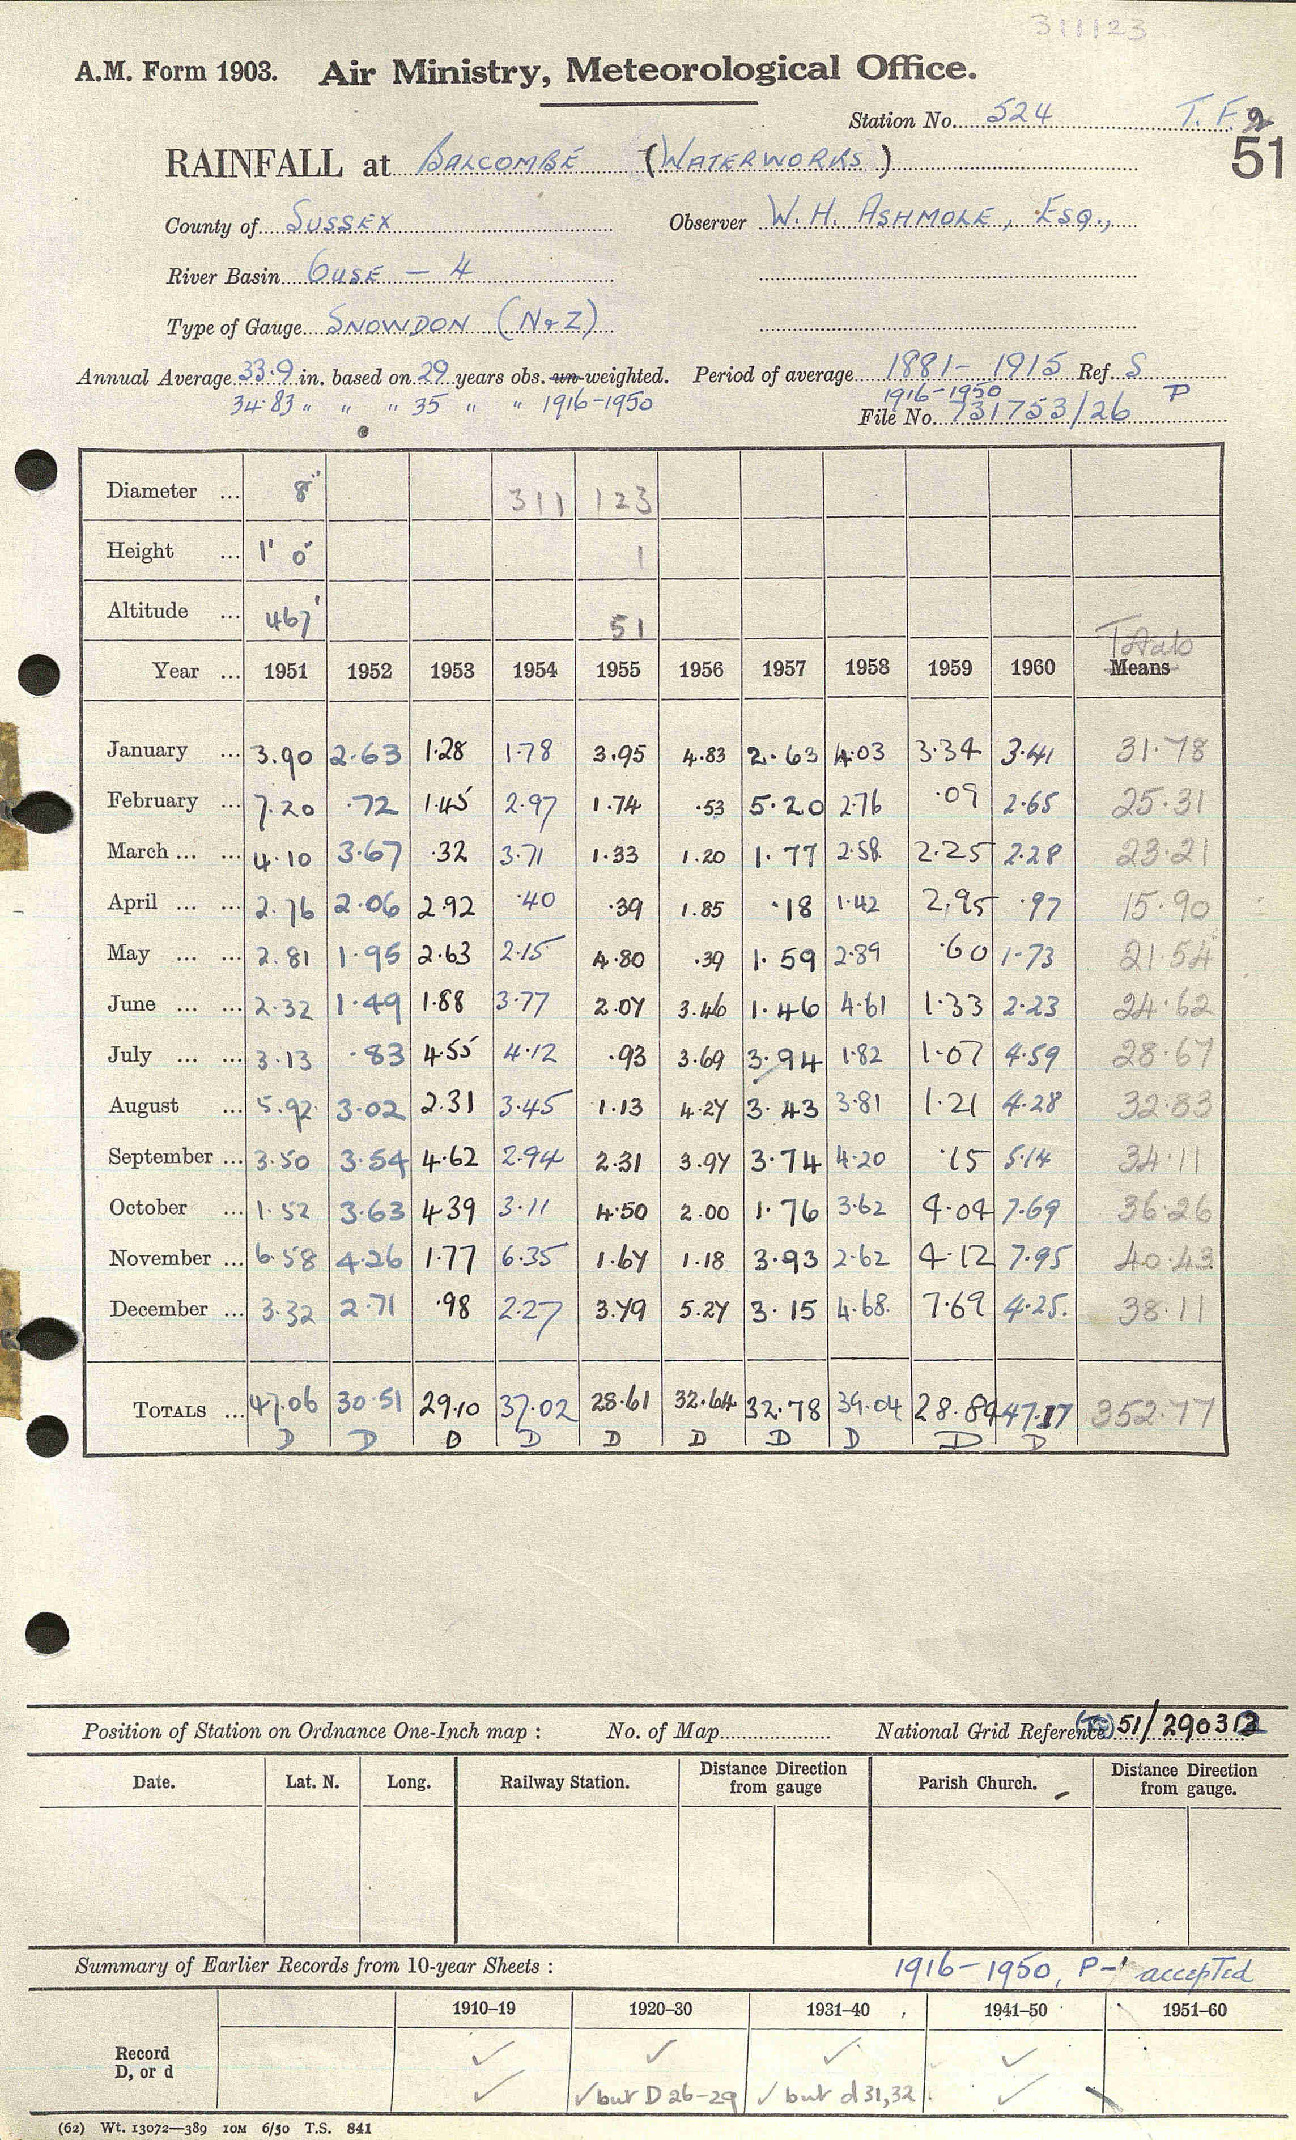 311123
A.M. Form 1903. Air Ministry, Meteorological Office.
Station No. 524 T.F 2
51
RAINFALL at BALCOMBE (WATERWORKS)
County of SUSSEX Observer W.H. ASHMOLE, ESQ.,
River Basin OUSE - 4
Type of Gauge SNOWDON (N & Z)
Annual Average 33.9 in. based on 29 years obs. un-weighted. Period of average 1881-1915 Ref S
34.83 " " " 35 " " 1916-1950 1916-1950 P
File No. 731753/26
Diameter ... 8" 311 123
Height ... 1' 0" 1
Altitude ... 467' 51
Totals
Year ... 1951 1952 1953 1954 1955 1956 1957 1958 1959 1960 Means
January ... 3.90 2.63 1.28 1.78 3.95 4.83 2.63 4.03 3.34 3.41 31.78
February ... 7.20 .72 1.45 2.97 1.74 .53 5.20 2.76 .09 2.65 25.31
March ... ... 4.10 3.67 .32 3.71 1.33 1.20 1.77 2.58 2.25 2.28 23.21
April ... ... 2.76 2.06 2.92 .40 .39 1.85 .18 1.42 2.95 .97 15.90
May ... ... 2.81 1.95 2.63 2.15 4.80 .39 1.59 2.89 .60 1.73 21.54
June ... ... 2.32 1.49 1.88 3.77 2.07 3.46 1.46 4.61 1.33 2.23 24.62
July ... ... 3.13 .83 4.55 4.12 .93 3.69 3.94 1.82 1.07 4.59 28.67
August ... 5.92 3.02 2.31 3.45 1.13 4.27 3.43 3.81 1.21 4.28 32.83
September ... 3.50 3.54 4.62 2.94 2.31 3.97 3.74 4.20 .15 5.14 34.11
October ... 1.52 3.63 4.39 3.11 4.50 2.00 1.76 3.62 4.04 7.69 36.26
November ... 6.58 4.26 1.77 6.35 1.67 1.18 3.93 2.62 4.12 7.95 40.43
December ... 3.32 2.71 .98 2.27 3.79 5.27 3.15 4.68 7.69 4.25 38.11
TOTALS ... 47.06 30.51 29.10 37.02 28.61 32.64 32.78 39.04 28.84 47.17 352.77
D D D D D D D D D D
Position of Station on Ordnance One-Inch map : No. of Map National Grid Reference (TQ) 51/290312
Date. Lat. N. Long. Railway Station. Distance Direction from gauge Parish Church. Distance Direction from gauge.
Summary of Earlier Records from 10-year Sheets : 1916-1950, P- accepted
1910–19 1920–30 1931–40 1941–50 1951–60
Record ✓ ✓ ✓ ✓
D, or d ✓ ✓ but D 26-29 ✓ but d 31,32 ✓
(62) Wt. 13072—389 10M 6/50 T.S. 841